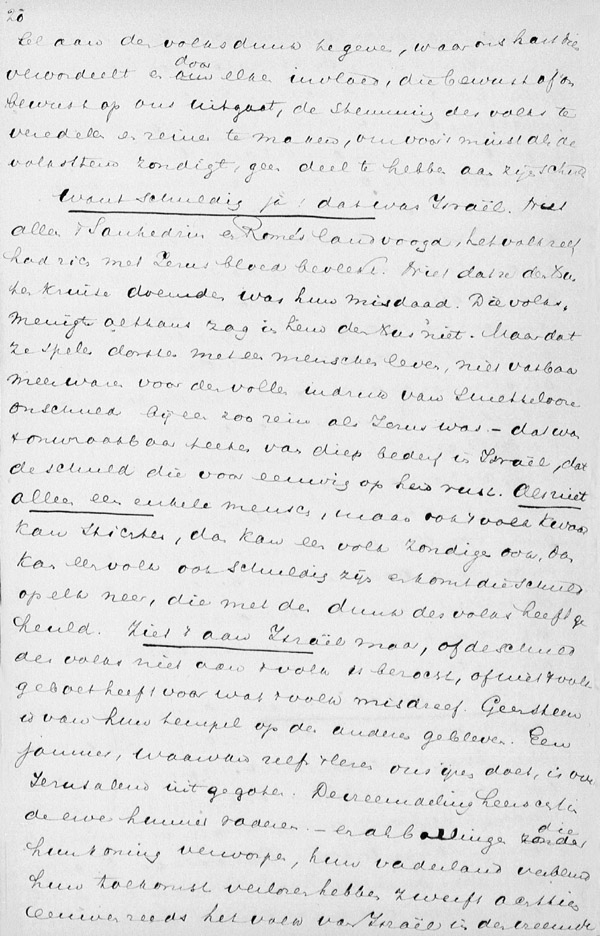 20
toe aan den volksdunk te geven, waar ons hart dien
veroordeelt en door elken invloed, die bewust of on
bewust op ons uitgaat, de stemming des volks te
veredelen en reiner te maken, om voor 't minst als de
volksstem zondigt, geen deel te hebben aan zijn schuld
Want schuldig ja! dat was Israël. Niet
alleen 't Sanhedrin en Rome's landvoogd, het volk zelf
had zich met Jezus bloed bevlekt. Niet dat ze den
ten kruise doemden was hun misdaad. Die volks-
menigte althans zag in hem den niet. Maar dat
ze spelen dorsten met een menschenleven, niet vatbaar
meer waren voor den vollen indruk van smetteloze
onschuld bij een zoo rein als Jezus was – dat was
't onwraakbaar teeken van diep bederf in Israël, dat
de schuld die voor eeuwig op hen rust. Als niet
alleen een enkele mensch, maar ook 't volk kwaad
kan stichten, dan kan een volk zondigen ook, dan
kan een volk ook schuldig zijn en komt die schuld
op elk neer, die met den dunk des volks heeft ge
heuld. Ziet 't aan Israël maar, of de schuld
des volks niet aan 't volk is bezocht, of niet 't volk
geboet heeft voor wat 't volk misdreef. Geen steen
is van hun tempel op den anderen gebleven. Een
jammer, waarvan zelfs 't lezen ons ijzen doet, is over
Jeruzalem uitgegoten. De vreemdeling heerscht in
de erve hunner vaderen – en als ballingen die
hun koning verworpen, hun vaderland verbeurd
hun toekomst verloren hebben zwerft achttien
eeuwen reeds het volk van Israël in den vreemde